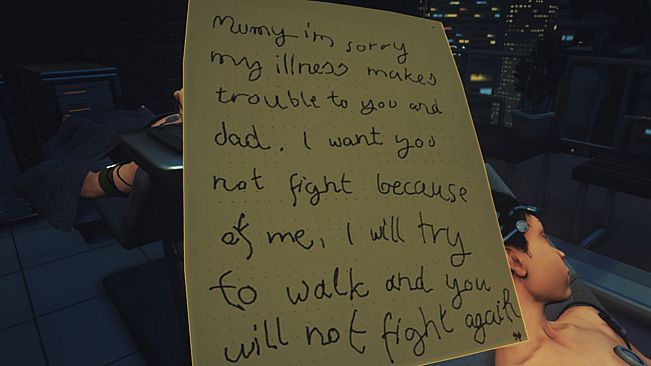 Mumy i'm sorry
my illness makes
trouble to you and
dad. I want you
not fight because
of me, I will try
to walk and you
will not fight again